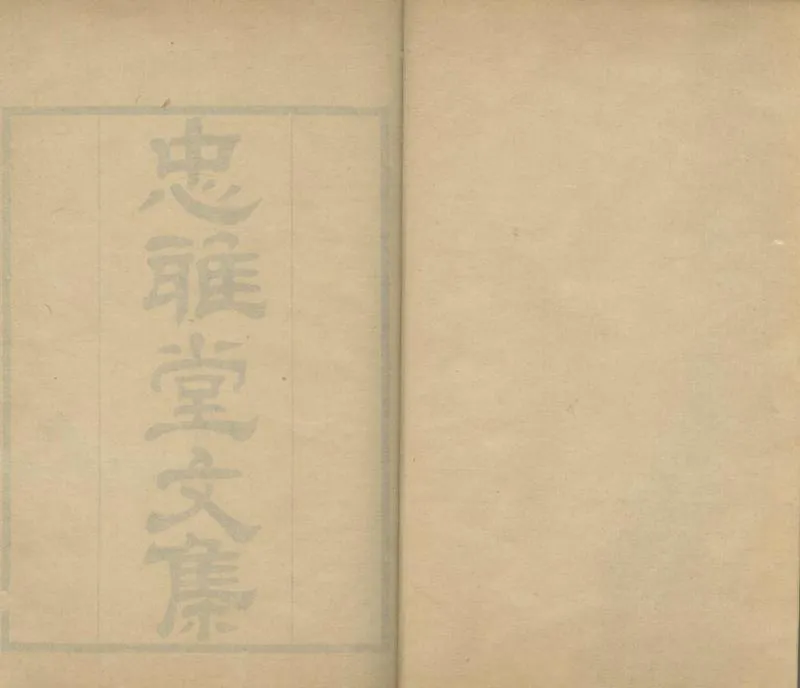 忠雅堂文集